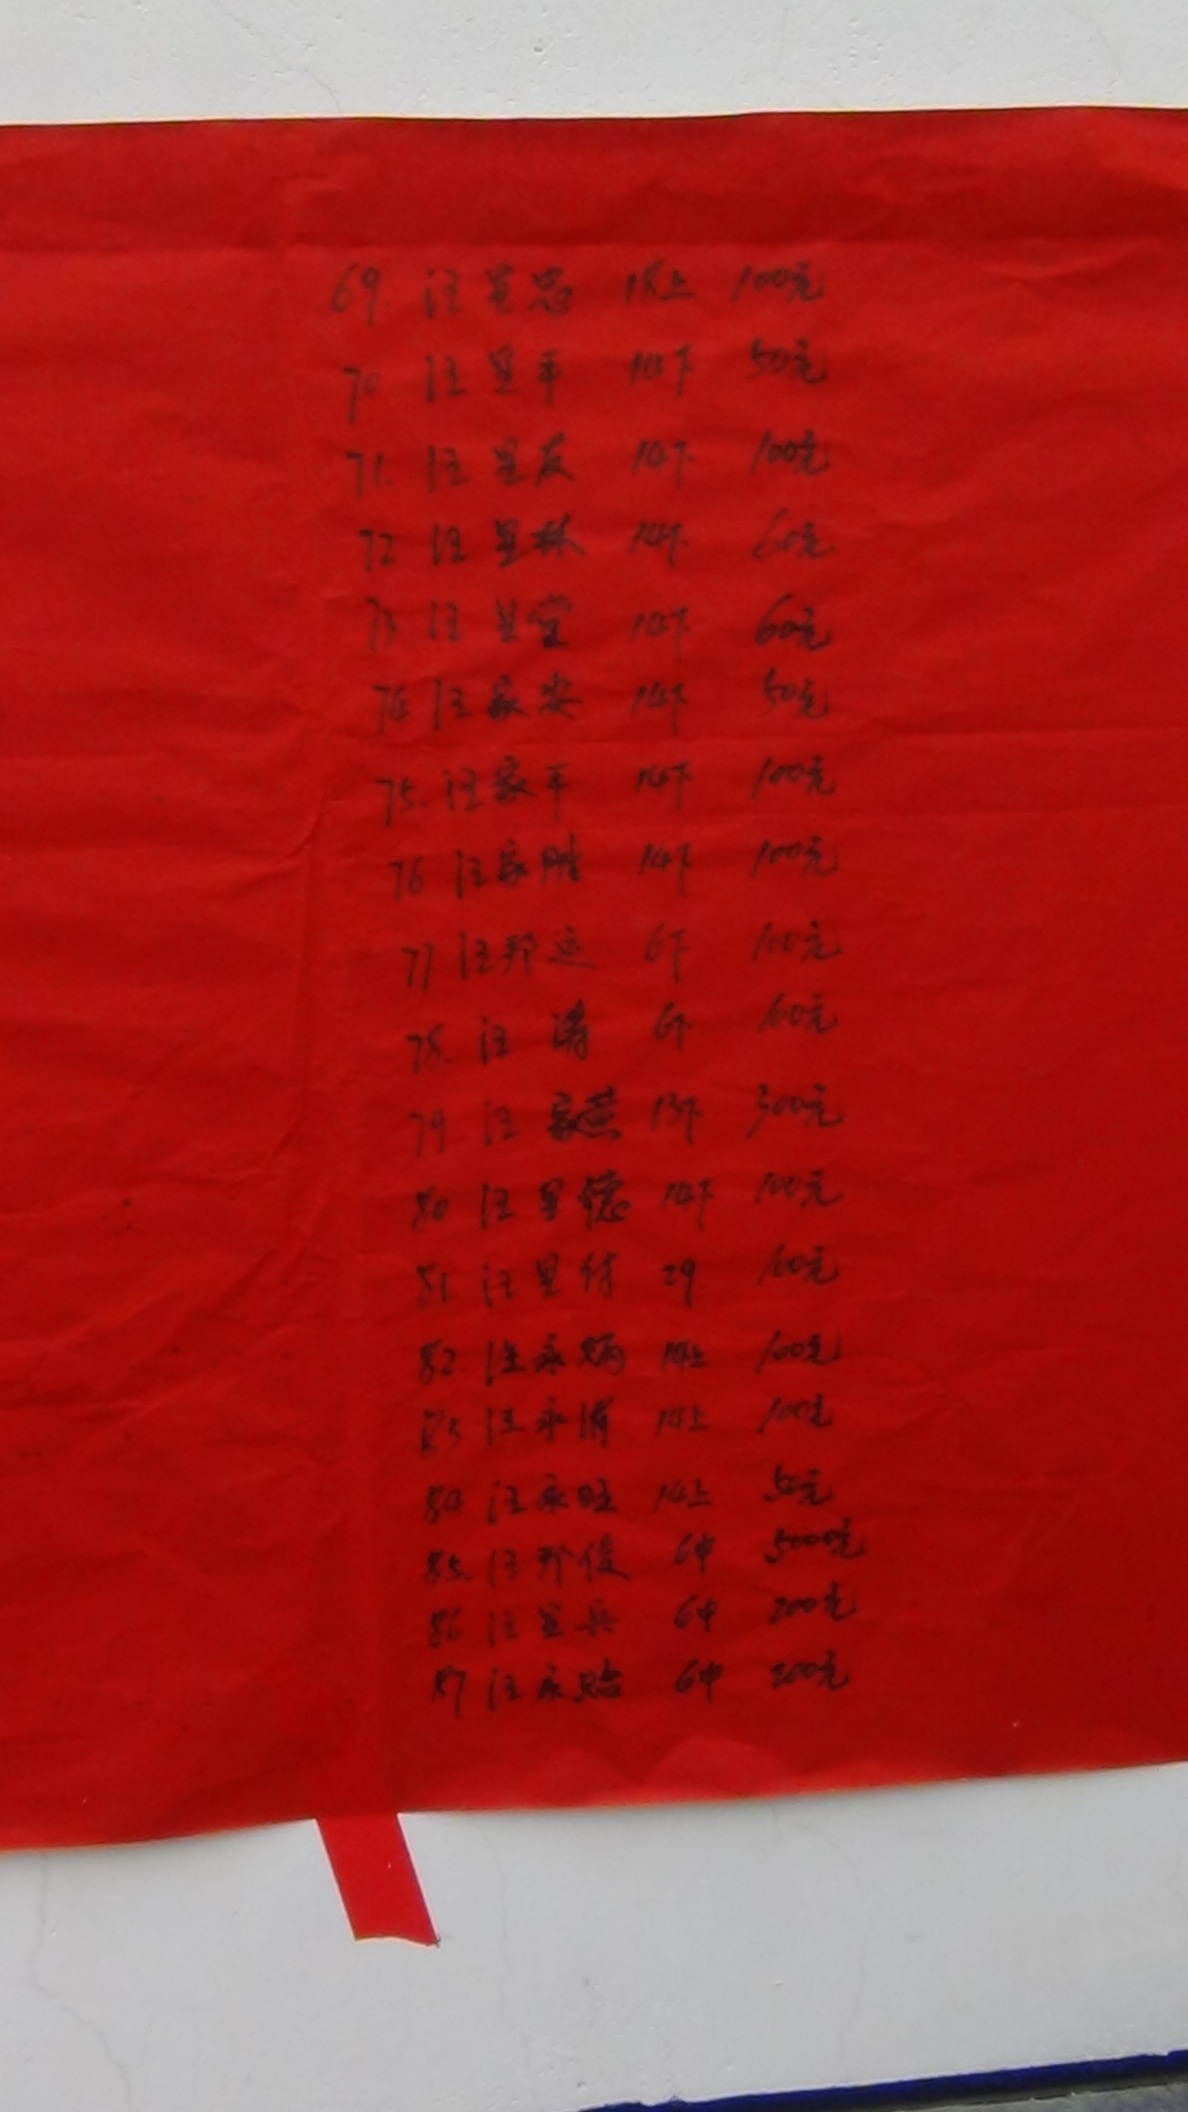 69. 汪呈忠 18上 100元
70 汪呈平 14下 50元
71. 汪呈友 14下 100元
72 汪呈林 14下 60元
73 汪呈堂 14下 60元
74 汪家安 14下 50元
75. 汪家平 14下 100元
76 汪家胜 14下 100元
77 汪邦运 6下 100元
78. 汪涛 6下 100元
79 汪家燕 13下 300元
80 汪呈德 14下 100元
81 汪呈 29 100元
82. 汪永炳 14上 100元
83 汪永清 14上 100元
84 汪永旺 14上 50元
85. 汪邦俊 6中 5000元
86 汪呈兵 6中 200元
87 汪永贻 6中 200元